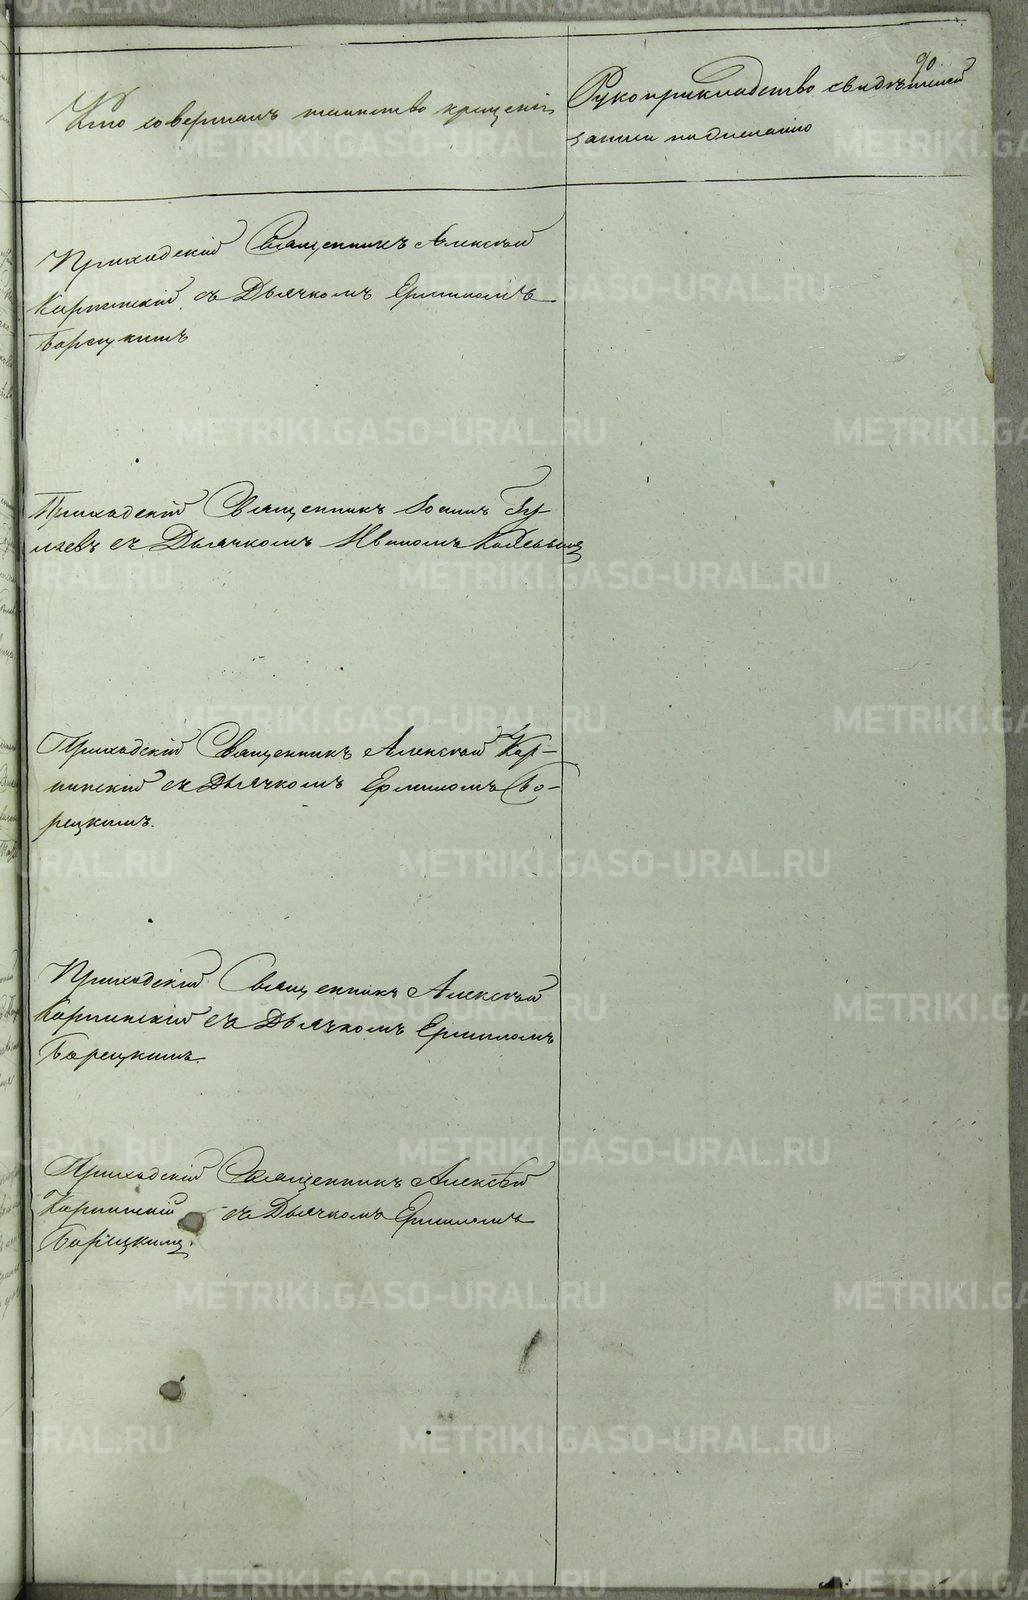 90
Кто совершалъ таинство крещенія
Рукоприкладство свидѣтелей
записи по желанію
Приходскій Священникъ Алексѣй
Карпинскій съ Дьячкомъ Ермиломъ
Борецкимъ
Приходскій Священникъ Іоаннъ Гу
ляевъ съ Дьячкомъ Иваномъ
Приходскій Священникъ Алексѣй Кар-
пинскій съ Дьячкомъ Ермиломъ Бо-
рецкимъ.
Приходскій Священникъ Алексѣй
Карпинскій съ Дьячкомъ Ермиломъ
Борецкимъ.
Приходскій Священникъ Алексѣй
Карпинскій съ Дьячкомъ Ермиломъ
Борецкимъ.
METRIKI.GASO-URAL.RU